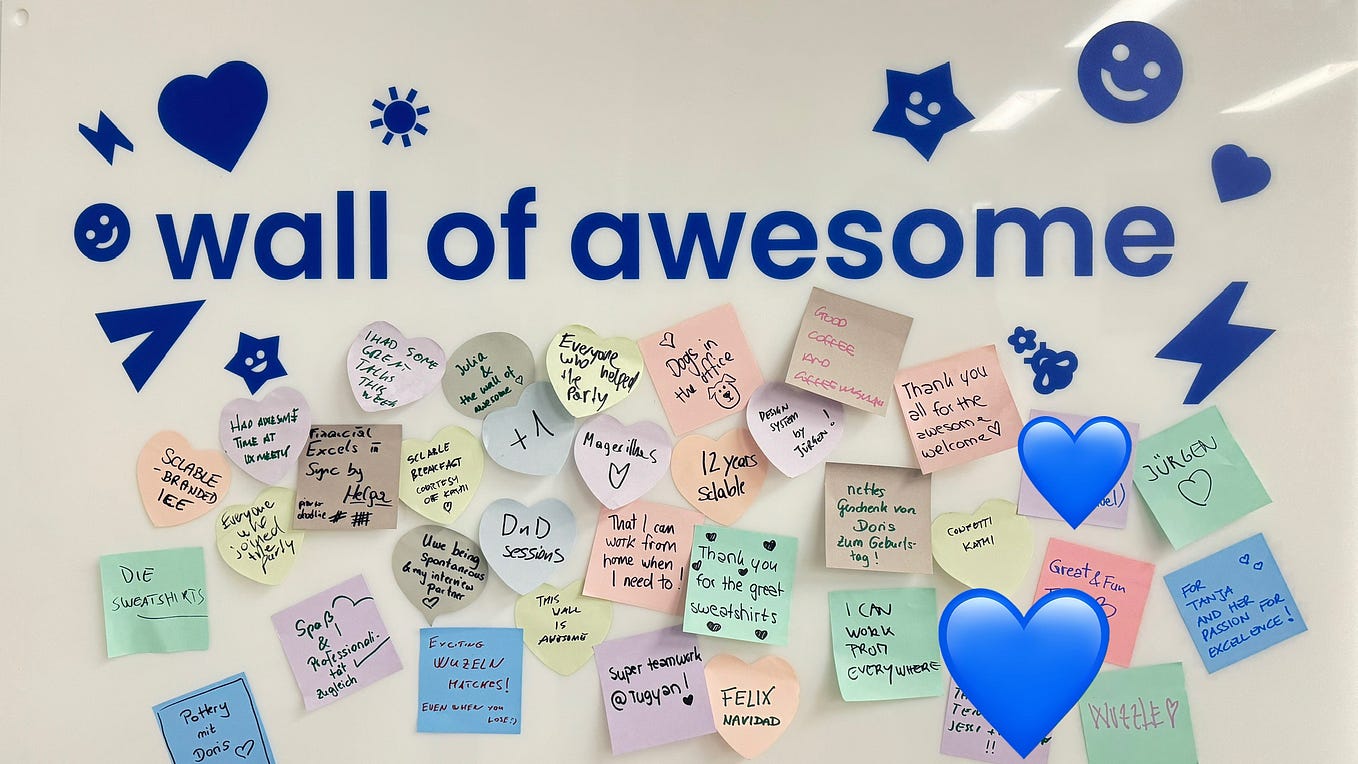 wall of awesome
I HAD SOME
GREAT
TALKS
THIS
WEEK
Julia
&
the wall of
awesome
Everyone
who helped
the
Party
Dogs in
the office
GOOD
COFFEE
AND
HAD AWESOME
TIME AT
UX MEETUP
Financial
Excels in
Sync by
Helga
SCLABLE
BREAKFAST
COURTESY
OF KATHI
+1
12 years
Sclable
DESIGN
SYSTEM
BY
JÜRGEN!
Thank you
all for the
awesome
welcome
JÜRGEN
SCLABLE
-BRANDED
Everyone
who
joined
the
party
Uwe being
spontaneous
& my interview
partner
DnD
SESSIONS
That I can
work from
home when
I need to!
Thank you
for the great
sweatshirts
nettes
Geschenk von
Doris
zum Geburts-
tag!
CONFETTI
KATHI
Great & Fun
FOR
TANJA
AND HER
PASSION FOR
EXCELLENCE!
DIE
SWEATSHIRTS
Spaß
&
Professionali-
tät
zugleich
EXCITING
WUZELN
MATCHES!
EVEN WHEN YOU
LOSE :)
THIS
WALL
IS
AWESOME
Super teamwork
@Tugyan!
FELIX
NAVIDAD
I CAN
WORK
FROM
EVERYWHERE
JESSI
!!
WUZZLE
Pottery
mit
Doris